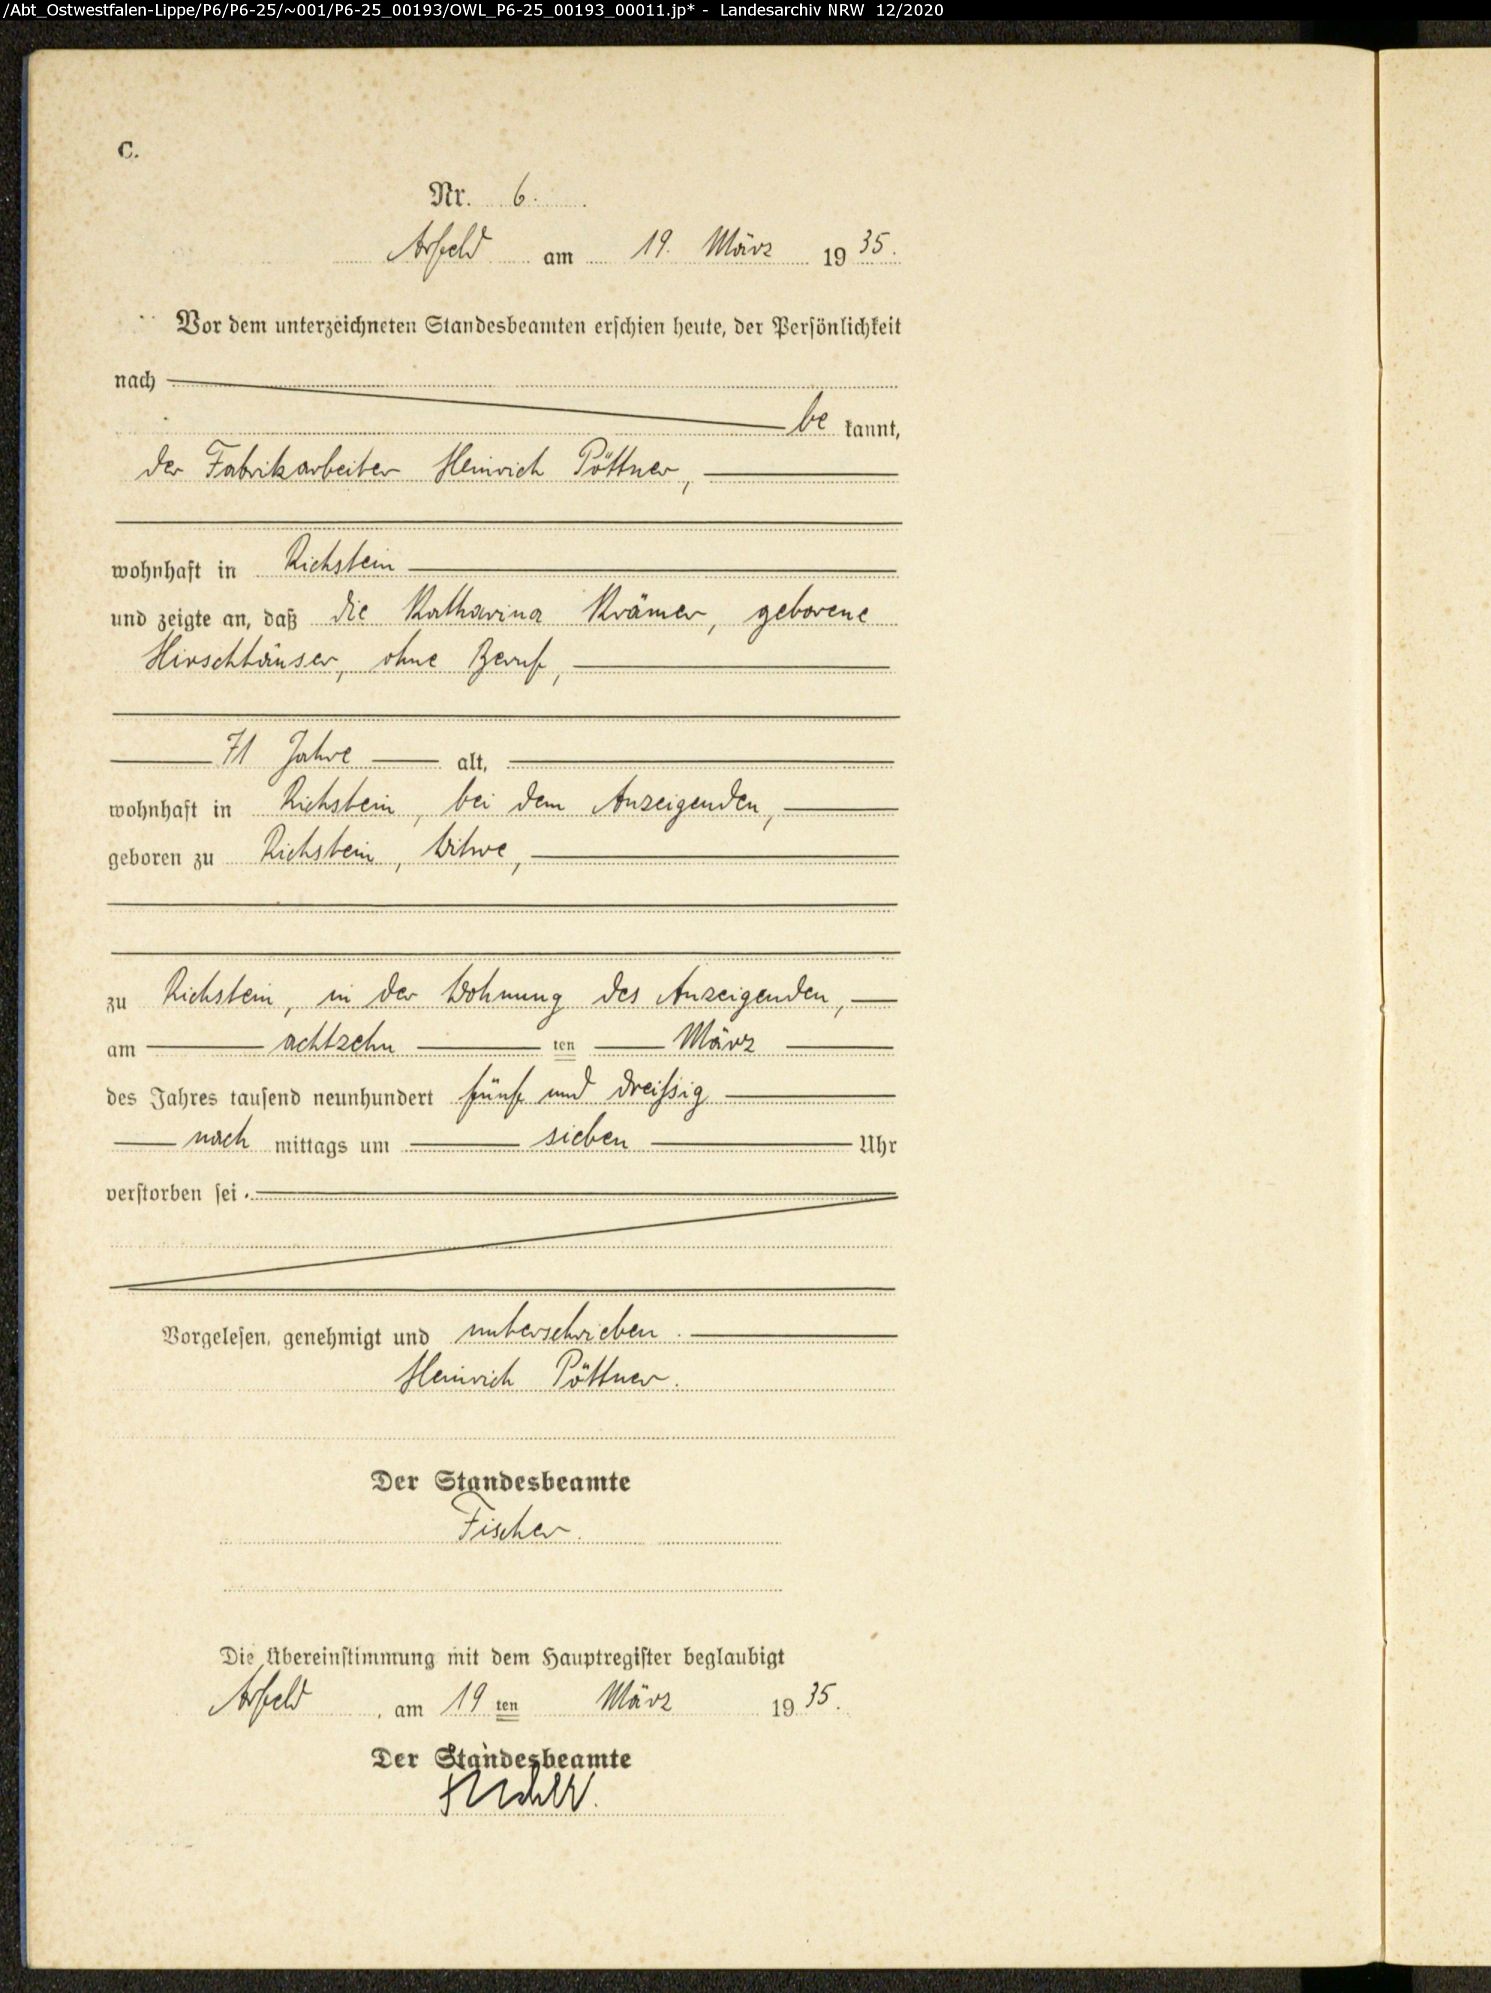 /Abt_Ostwestfalen-Lippe/P6/P6-25/~001/P6-25_00193/OWL_P6-25_00193_00011.jp* - Landesarchiv NRW 12/2020
C.
Nr. 6.
Arfeld am 19. März 1935.
Vor dem unterzeichneten Standesbeamten erschien heute, der Persönlichkeit
nach
be kannt,
der Fabrikarbeiter Heinrich Pöttner,
wohnhaft in Richstein
und zeigte an, daß die Katharina Krämer, geborene
Hirschhäuser, ohne Beruf,
71 Jahre alt,
wohnhaft in Richstein, bei dem Anzeigenden,
geboren zu Richstein, Witwe,
zu Richstein, in der Wohnung des Anzeigenden,
am achtzehn ten März
des Jahres tausend neunhundert fünf und dreißig
nach mittags um sieben Uhr
verstorben sei.
Vorgelesen, genehmigt und unterschrieben.
Heinrich Pöttner.
Der Standesbeamte
Fischer.
Die Übereinstimmung mit dem Hauptregister beglaubigt
Arfeld, am 19 ten März 1935.
Der Standesbeamte
Fischer.